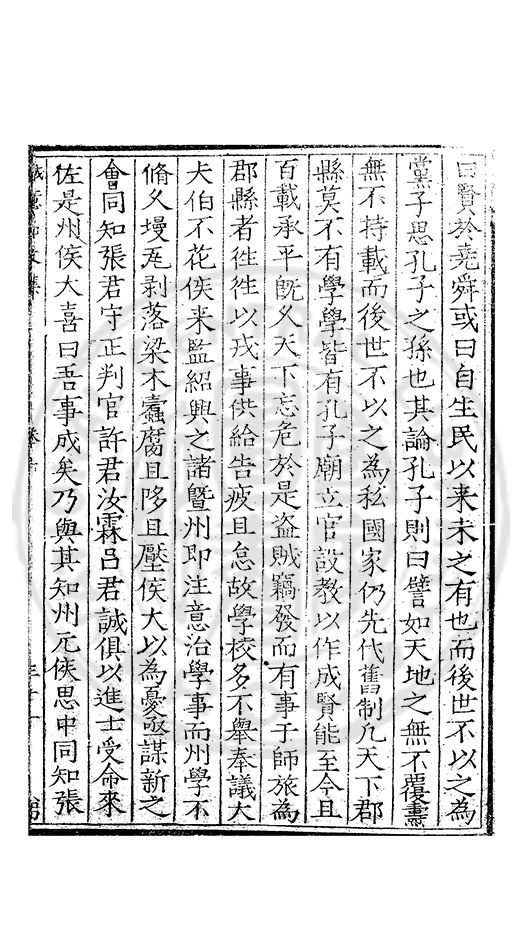 曰賢於堯舜或曰自生民以来未之有也而後世不以之為
黨子思孔子之孫也其論孔子則曰譬如天地之無不覆燾
無不持載而後世不以之為私國家仍先代舊制凡天下郡
縣莫不有學學皆有孔子廟立官設教以作成賢能至今且
百載承平旣久天下忘危於是盗賊竊發而有事于師旅為
郡縣者徃徃以戎事供給告疲且怠故學校多不舉奉議大
夫伯不花侯来監紹興之諸曁州即注意治學事而州學不
脩久墁瓦剥落梁木蠹腐且陊且壓侯大以為憂亟謀新之
會同知張君守正判官許君汝霖吕君誠俱以進士受命來
佐是州侯大喜曰吾事成矣乃與其知州元侯思中同知張